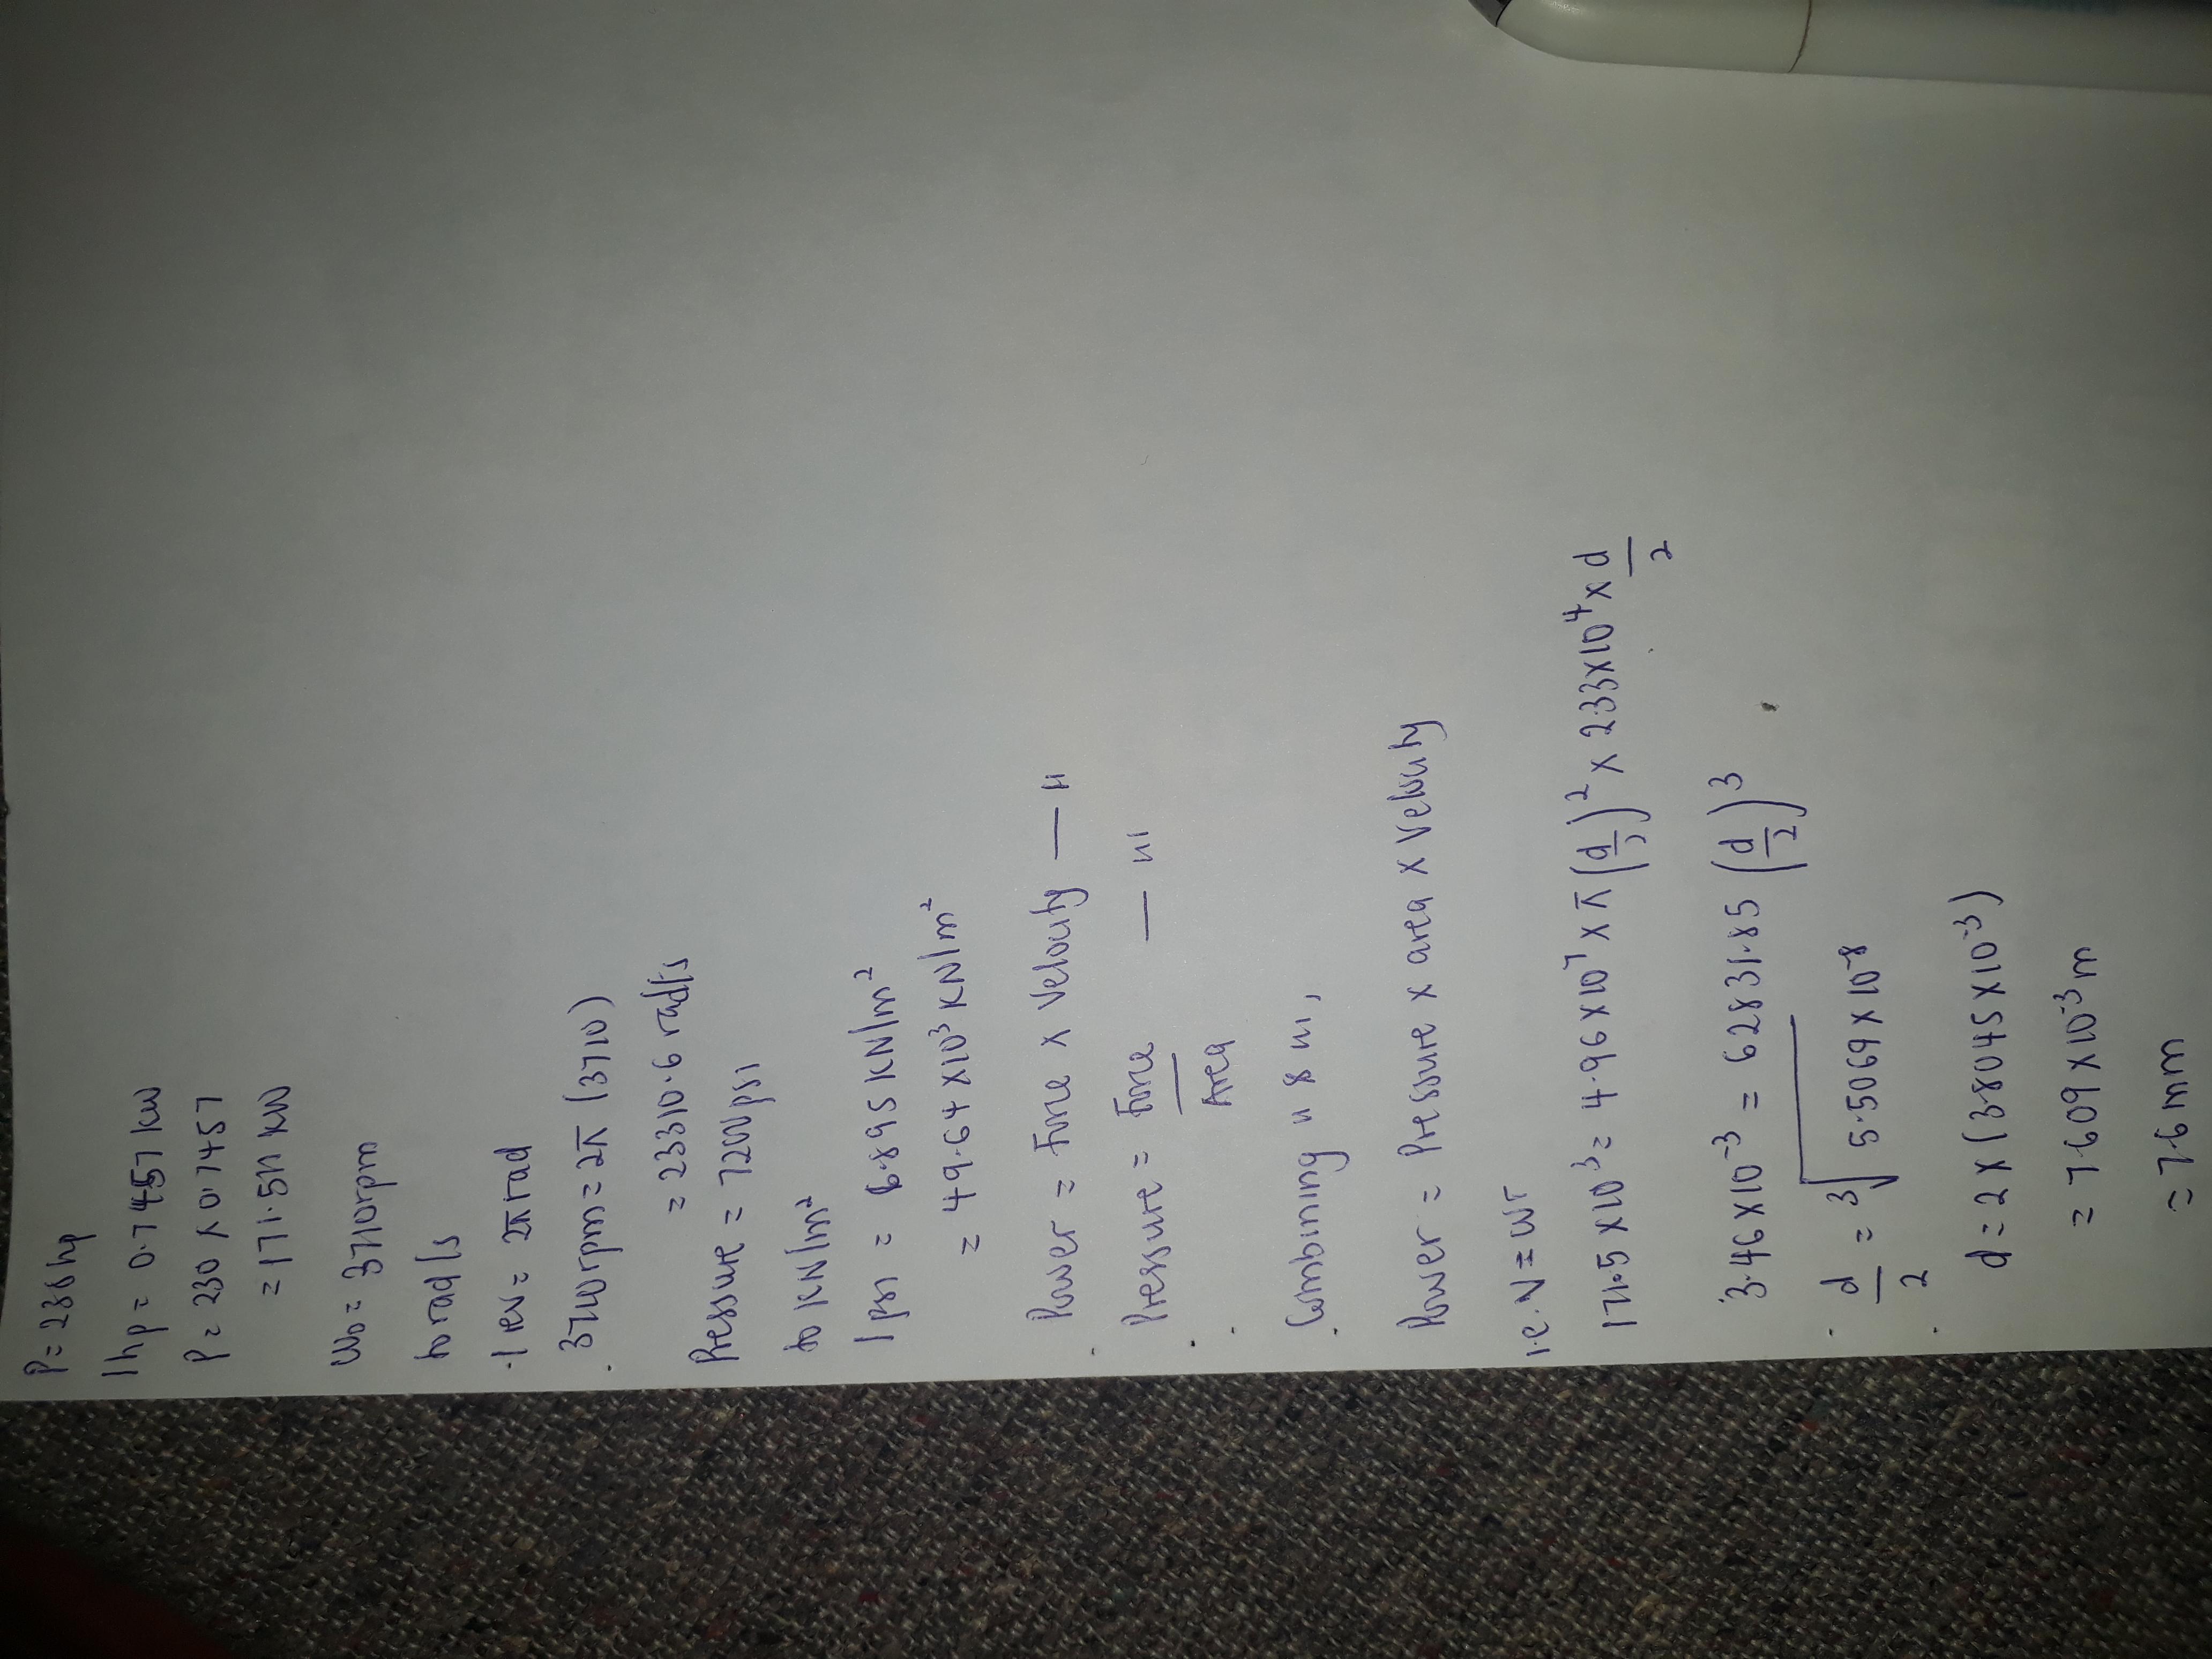 P = 230 hp
1hp = 0.7457 kW
P = 230 x 0.7457
= 171.511 kW
W₀ = 3710rpm
to rad/s
1 rev = 2π rad
3710rpm = 2π (3710)
= 23310.6 rad/s
Pressure = 7200psi
to KN/m²
1psi = 6.895 KN/m²
= 49.64 x10³ KN/m²
Power = Force x Velocity — ii
Pressure = Force/Area — iii
Combining ii & iii,
Power = Pressure x area x Velocity
i.e. V = wr
171.5 x10³ = 4.96 x10⁷ x π (d/2)² x 2.33x10⁴ x d/2
3.46 x10⁻³ = 62831.85 (d/2)³
d/2 = ³√5.5069 x 10⁻⁸
d = 2 x (3.8045 x10⁻³)
= 7.609 x10⁻³ m
= 7.6 mm